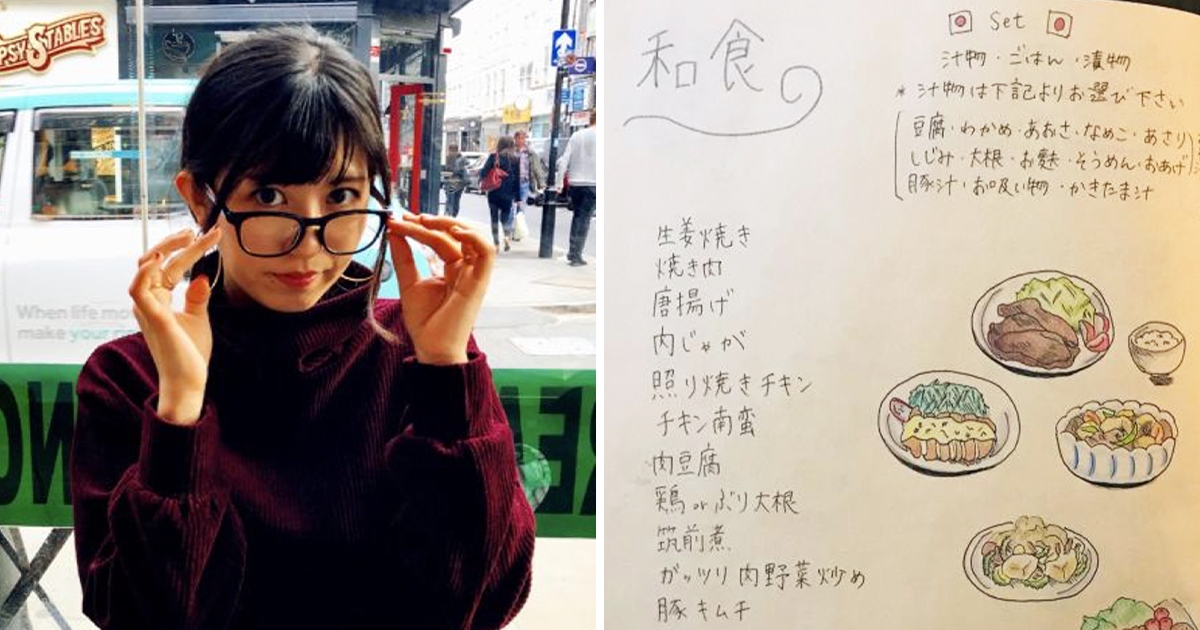 PSY STABLES
When life mo
make your
和食
Set
汁物・ごはん・漬物
* 汁物は下記よりお選び下さい
豆腐・わかめ・あおさ・なめこ・あさり
しじみ・大根・お麩・そうめん・おあげ
豚汁・お吸い物・かきたま汁
生姜焼き
焼き肉
唐揚げ
肉じゃが
照り焼きチキン
チキン南蛮
肉豆腐
鶏orぶり大根
筑前煮
ガッツリ肉野菜炒め
豚キムチ